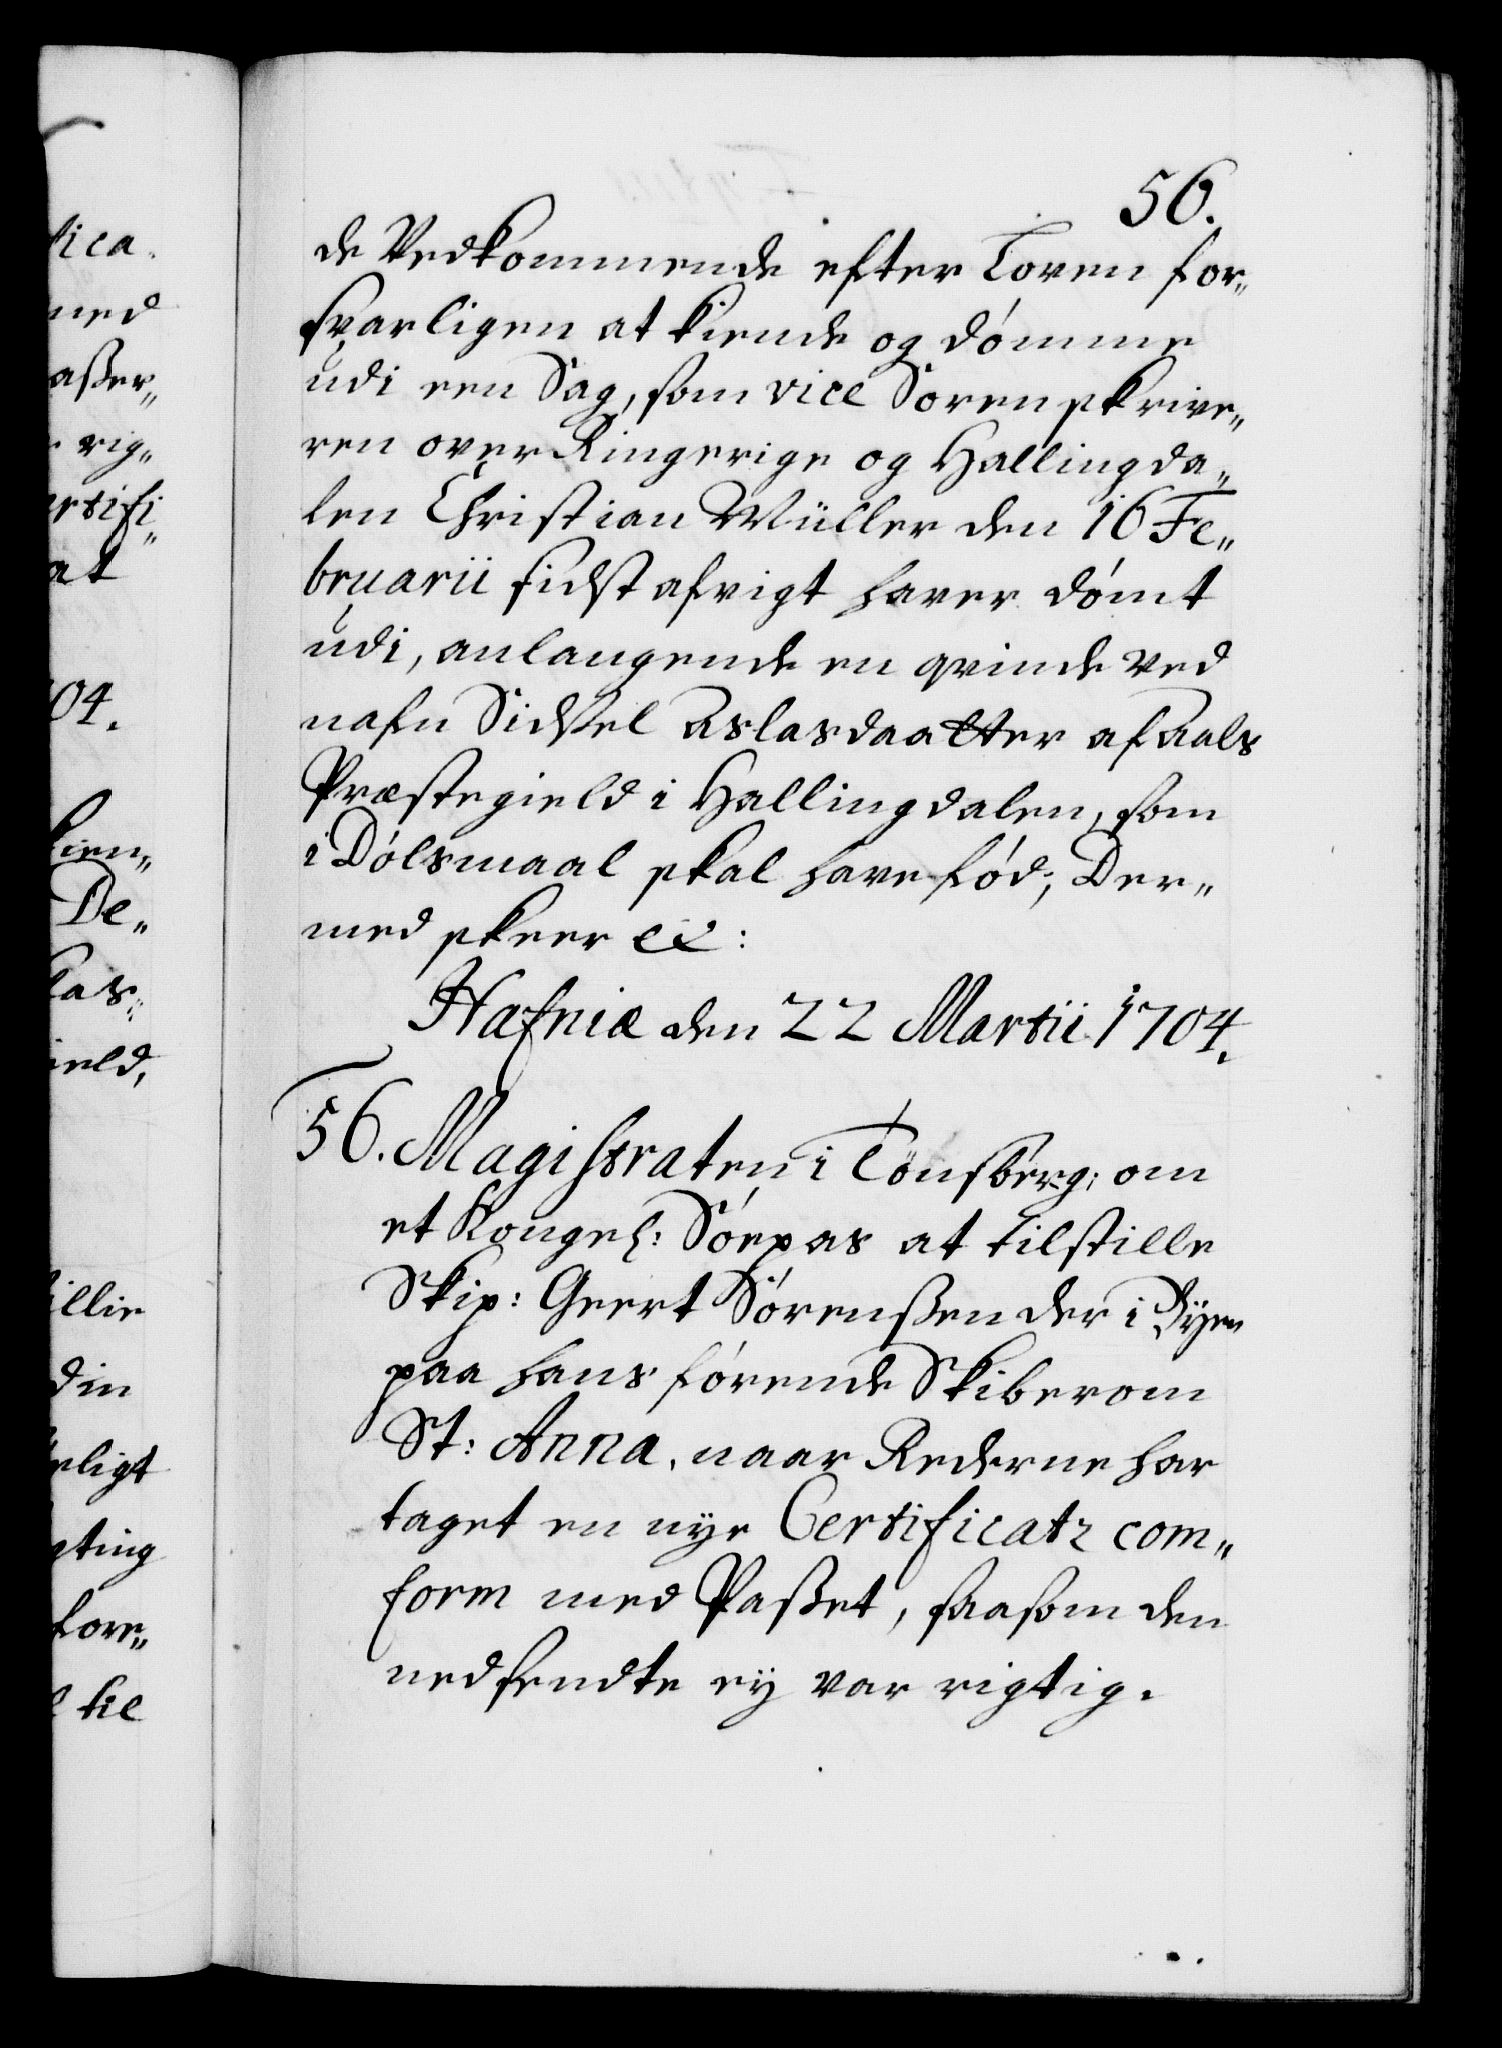 56.
de Vedkommende efter Loven for„
svarligen at kiende og dómme
udi een Sag, som vice Sorenskrive„
ren over Ringerige og Hallingda„
len Christian Müller den 16 Fe„
bruarii sidst afvigt haver dómt
udi, anlangende en qvinde ved
nafn Sidsel Aslasdaatter af Aals
Præstegield i Hallingdalen, som
i Dólsmaal skal have fód; Der„
med skeer ex:
Hafniæ den 22 Martii 1704.
56. Magistraten i Tonsberg; om
et Kongel: Sóepas at tilstille
Skip: Geert Sórenßen der i Byen
paa hans fórende Skib
St: Anna, naar Rederne har
taget en nye Certificatz com„
form med Paßet, saasom den
nedsendte ey var rigtig.
tica.
med
aßer„
rig„
ertifi„
at
04.
kien„
De„
las„
ield,
illie
din
eligt
gting
fore„
til